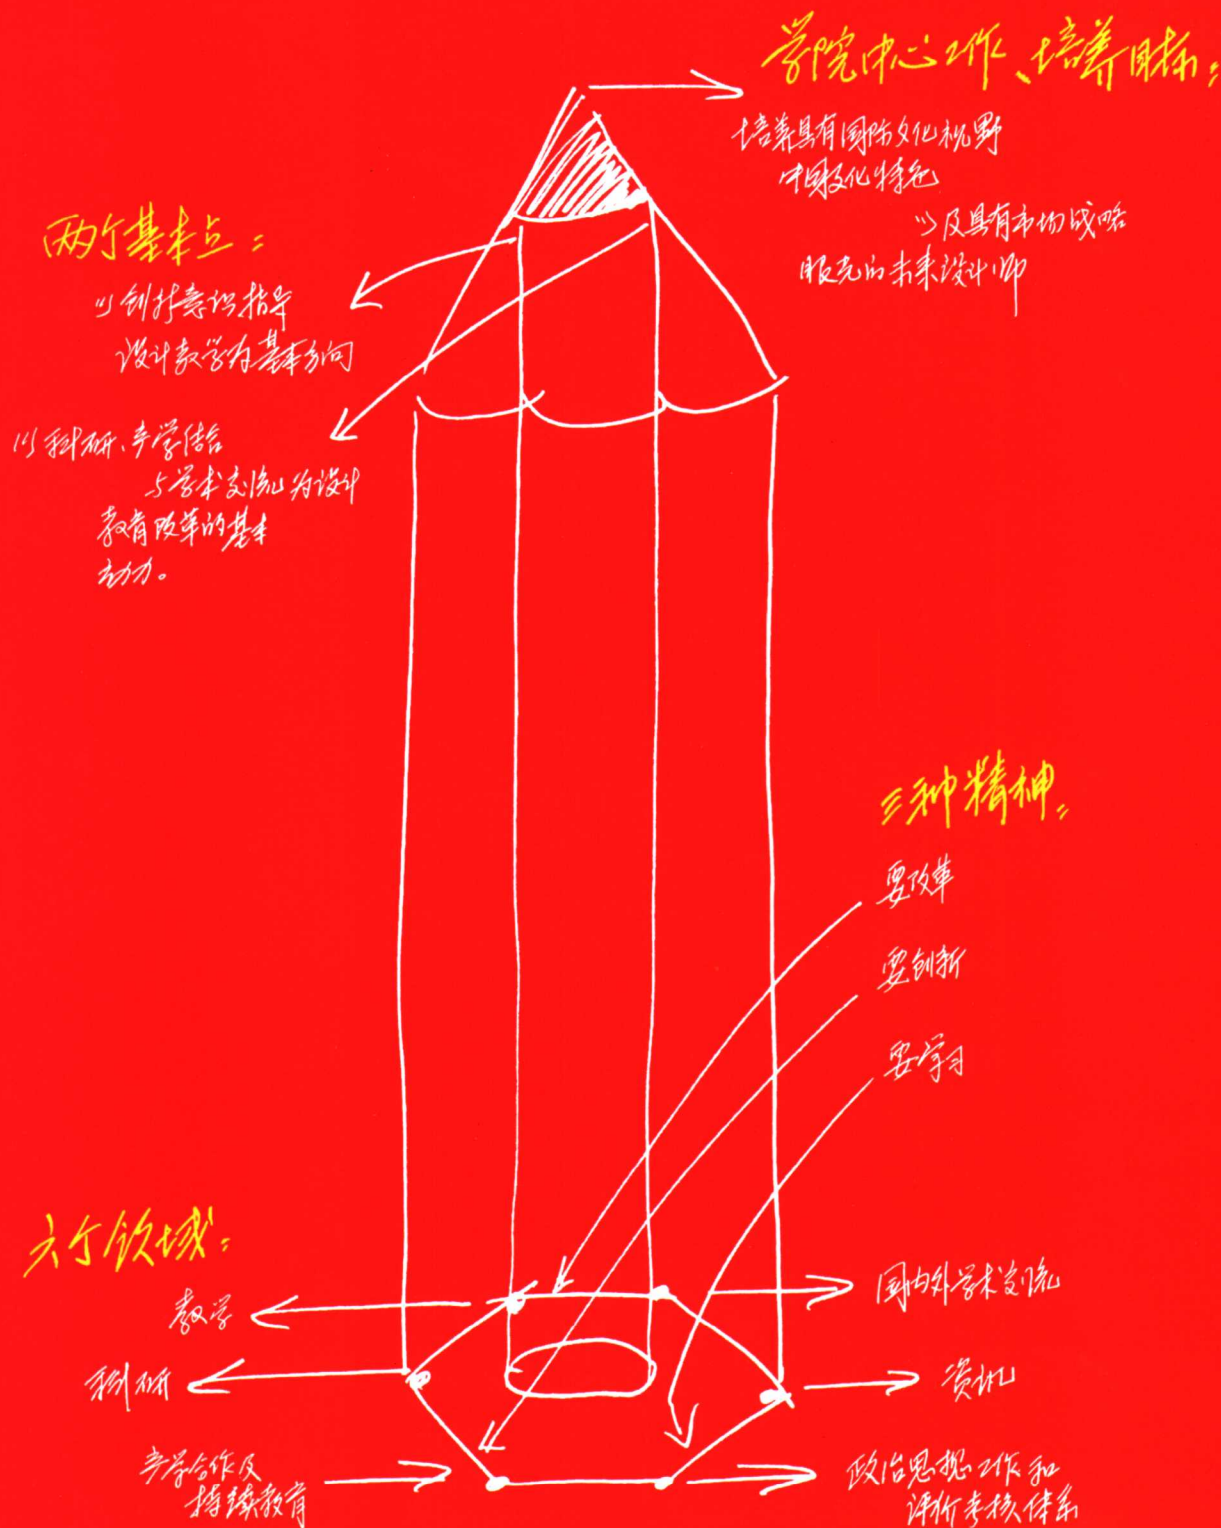 学院中心工作、培养目标:
培养具有国际文化视野
中国文化特色
以及具有市场战略
眼光的未来设计师
两个基本点:
以创新意识指导
设计教学为基本方向
以科研、产学结合
与学术交流为设计
教育改革的基本
动力。
三种精神:
要改革
要创新
要学习
六个领域:
教学
科研
产学合作及
持续教育
国内外学术交流
资讯
政治思想工作和
评价考核体系